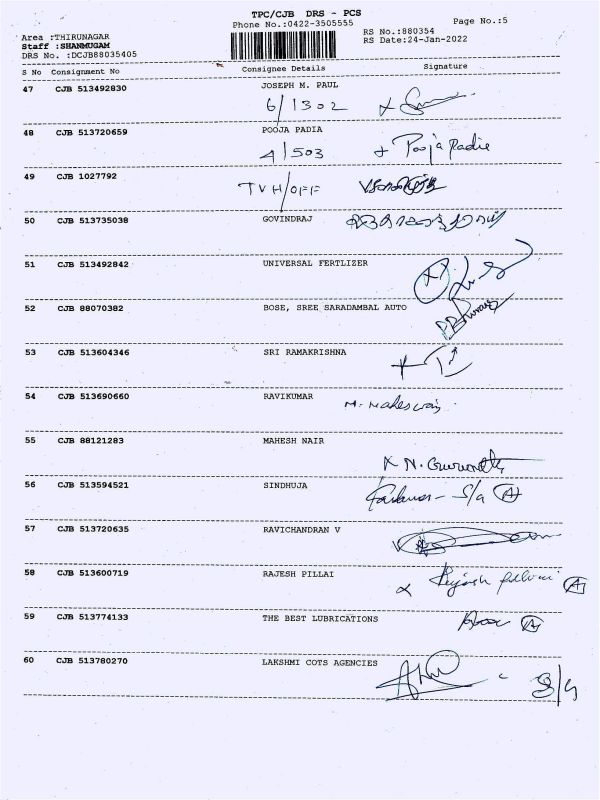 TPC/CJB DRS - PCS
Phone No.:0422-3505555
Page No.:5
Area :THIRUNAGAR
RS No.:880354
Staff :SHANMUGAM
RS Date:24-Jan-2022
DRS No. :DCJB88035405
S No Consignment No Consignee Details Signature
47 CJB 513492830 JOSEPH M. PAUL
6/1302
48 CJB 513720659 POOJA PADIA
4/503 Pooja Padia
49 CJB 1027792
TVH/OFF
50 CJB 513735038 GOVINDRAJ
51 CJB 513492842 UNIVERSAL FERTLIZER
52 CJB 88070382 BOSE, SREE SARADAMBAL AUTO
53 CJB 513604346 SRI RAMAKRISHNA
54 CJB 513690660 RAVIKUMAR
55 CJB 88121283 MAHESH NAIR
56 CJB 513594521 SINDHUJA
S/a A
57 CJB 513720635 RAVICHANDRAN V
58 CJB 513600719 RAJESH PILLAI
A
59 CJB 513774133 THE BEST LUBRICATIONS
A
60 CJB 513780270 LAKSHMI COTS AGENCIES